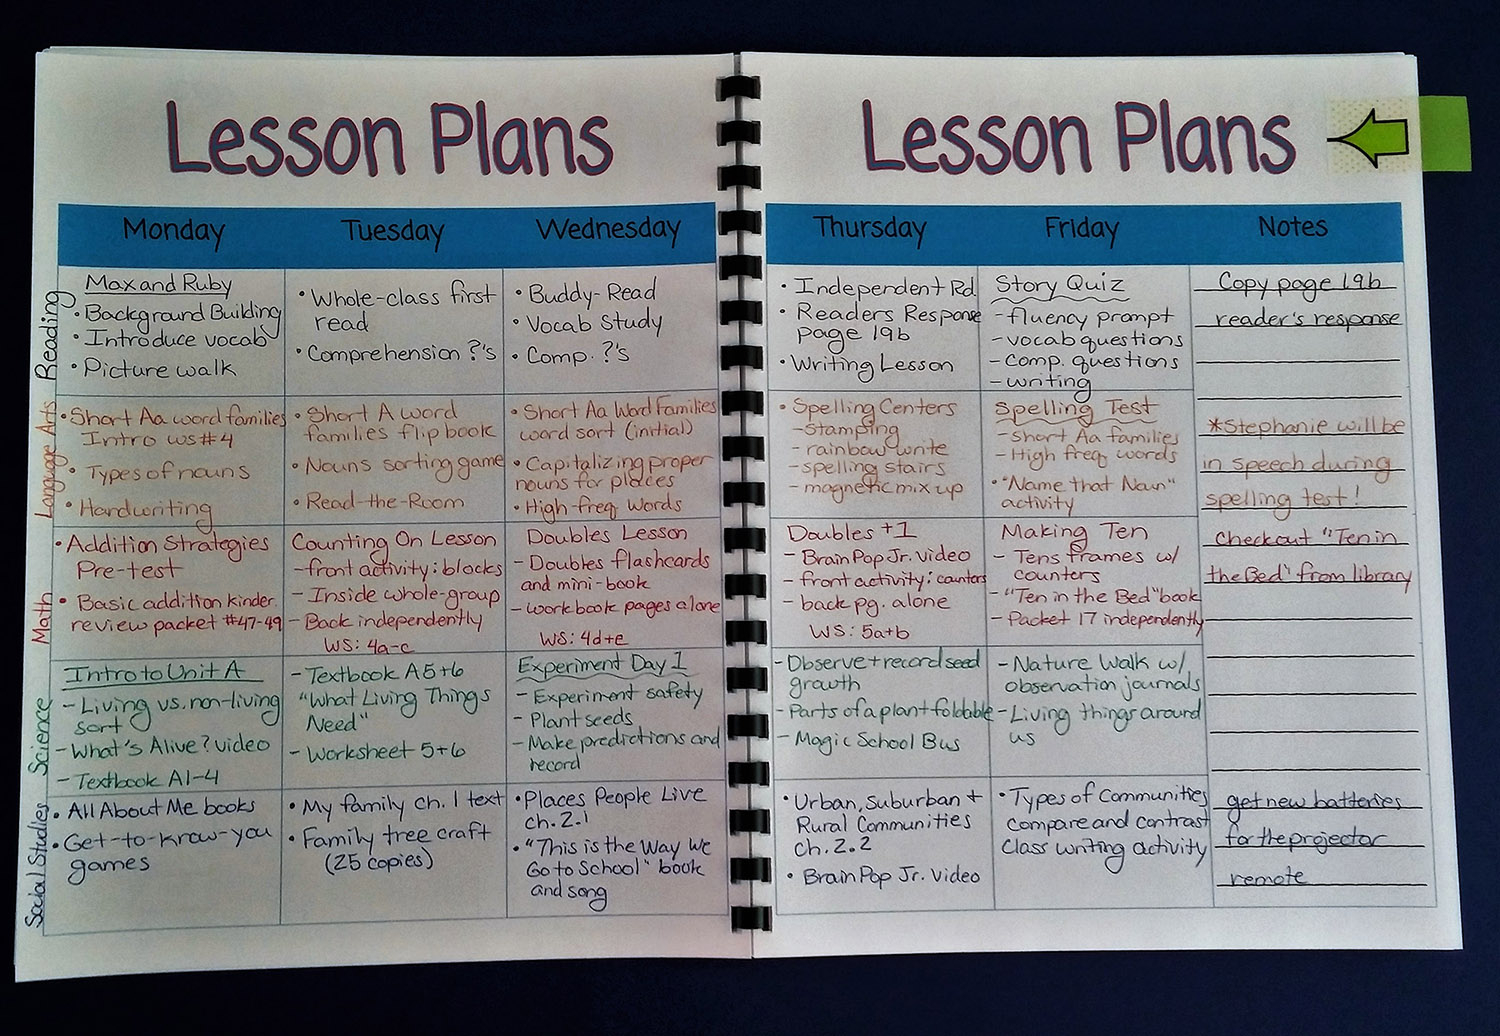 Lesson Plans
Monday
Tuesday
Wednesday
Reading
Max and Ruby
• Background Building
• Introduce vocab
• Picture walk
• Whole-class first
read
• Comprehension ?'s
• Buddy-Read
• Vocab Study
• Comp. ?'s
Language Arts
• Short Aa word families
Intro WS #4
• Types of nouns
• Handwriting
• Short A word
families flip book
• Nouns sorting game
• Read-the-Room
• Short Aa Word Families
word sort (initial)
• Capitalizing proper
nouns for places
• High-freq words
Math
• Addition Strategies
Pre-test
• Basic addition kinder.
review packet #47-49
Counting On Lesson
- front activity: blocks
- Inside whole-group
- Back independently
WS: 4a-c
Doubles Lesson
- Doubles flashcards
and mini-book
- workbook pages alone
WS: 4d+e
Science
Intro to Unit A
- Living vs. non-living
sort
- What's Alive? video
- Textbook A1-4
- Textbook A5+6
"What Living Things
Need"
- Worksheet 5+6
Experiment Day 1
- Experiment safety
- Plant seeds
- Make predictions and
record
Social Studies
• All About Me books
• Get-to-know-you
games
• My family ch. 1 text
• Family tree craft
(25 copies)
• Places People Live
ch. 2.1
• "This is the Way We
Go to School" book
and song
Lesson Plans
Thursday
Friday
Notes
• Independent Rd.
• Readers Response
page 19b
• Writing Lesson
Story Quiz
- fluency prompt
- vocab questions
- comp. questions
- writing
Copy page 19b
reader's response
• Spelling Centers
- stamping
- rainbow write
- spelling stairs
- magnetic mix up
Spelling Test
- short Aa families
- High freq words
• "Name that Noun"
activity
*Stephanie will be
in speech during
spelling test!
Doubles +1
- BrainPop Jr. video
- front activity: counters
- back pg. alone
WS: 5a+b
Making Ten
- Tens frames w/
counters
- "Ten in the Bed" book
- Packet 17 independently
Checkout "Ten in
the Bed" from library
- Observe + record seed
growth
- Parts of a plant foldable
- Magic School Bus
- Nature Walk w/
observation journals
- Living things around
us
• Urban, Suburban +
Rural Communities
ch. 2.2
• BrainPop Jr. Video
• Types of Communities
compare and contrast
class writing activity
get new batteries
for the projector
remote